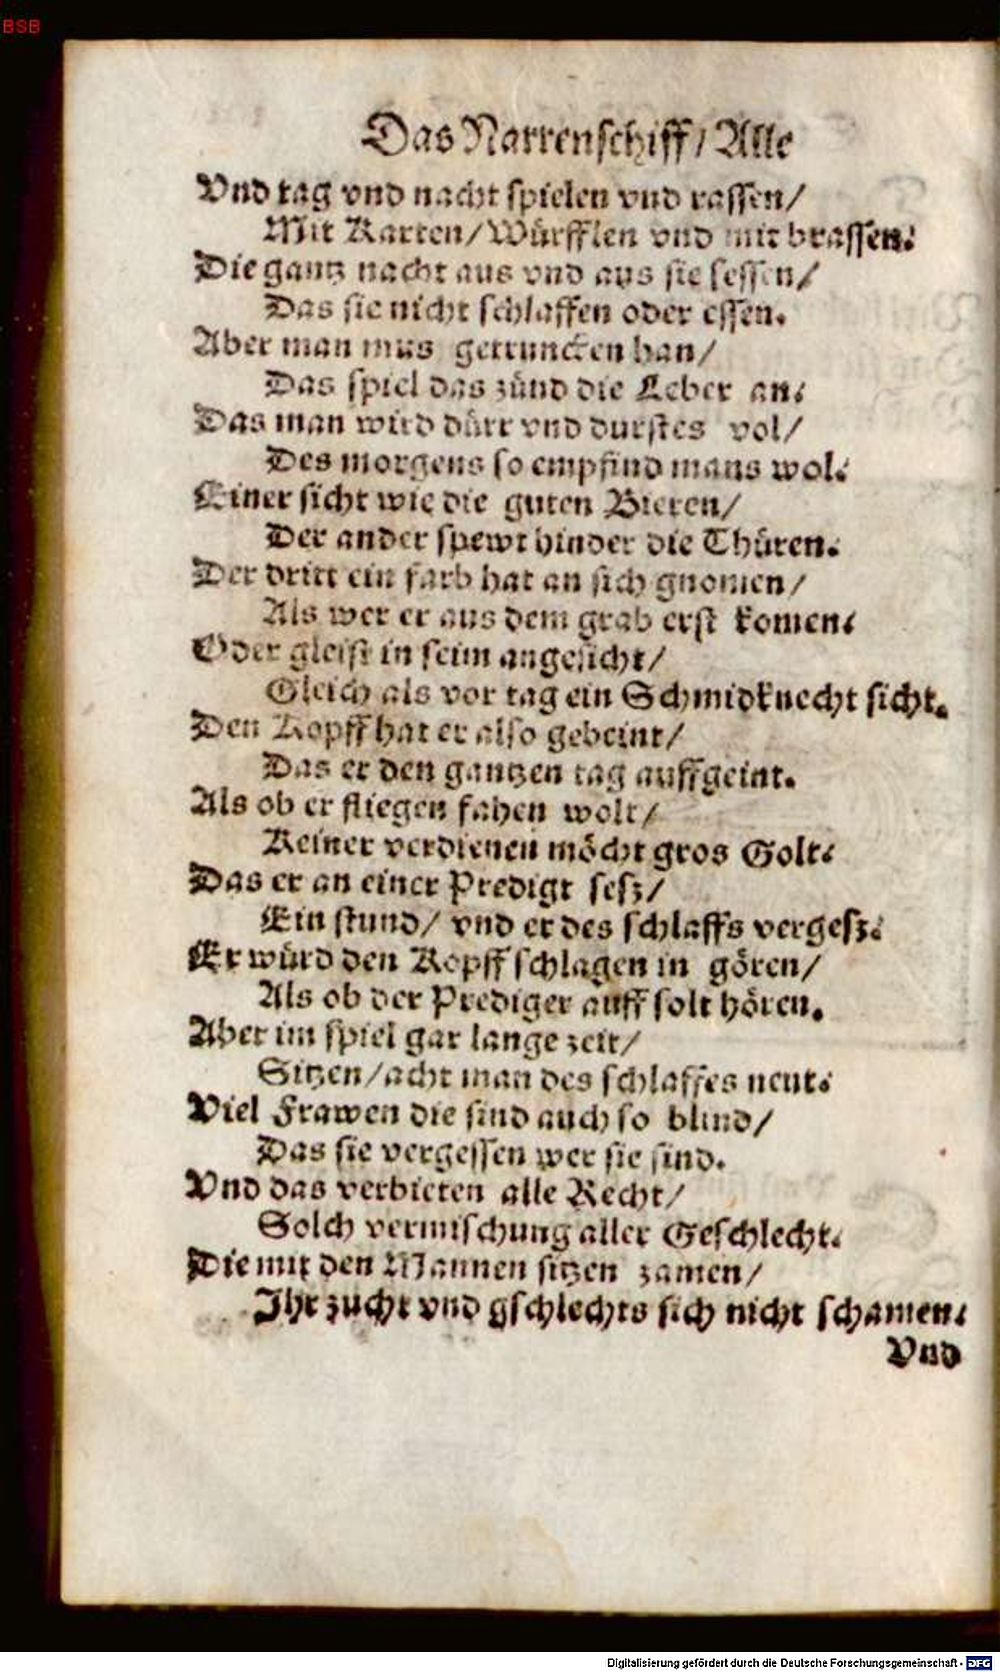 BSB
Das Narrenschiff/ Alle
Vnd tag vnd nacht spielen vnd rassen/
Mit Karten/ Würfflen vnd mit brassen.
Die gantz nacht aus vnd aus sie sessen/
Das sie nicht schlaffen oder essen.
Aber man mus getruncken han/
Das spiel das zünd die Leber an.
Das man wird dürr vnd durstes vol/
Des morgens so empfind mans wol.
Einer sicht wie die guten Bieren/
Der ander spewt hinder die Thüren.
Der dritt ein farb hat an sich gnomen/
Als wer er aus dem grab erst komen.
Oder gleist in seim angesicht/
Gleich als vor tag ein Schmidknecht sicht.
Den Kopff hat er also gebeint/
Das er den gantzen tag auffgeint.
Als ob er fliegen fahen wolt/
Keiner verdienen möcht gros Golt.
Das er an einer Predigt sesz/
Ein stund/ vnd er des schlaffs vergesz.
Er würd den Kopff schlagen in gören/
Als ob der Prediger auff solt hören.
Aber im spiel gar lange zeit/
Sitzen/ acht man des schlaffes neut.
Viel Frawen die sind auch so blind/
Das sie vergessen wer sie sind.
Vnd das verbieten alle Recht/
Solch vermischung aller Geschlecht.
Die mit den Mannen sitzen zamen/
Ihr zucht vnd gschlechts sich nicht schamen.
Vnd
Digitalisierung gefördert durch die Deutsche Forschungsgemeinschaft - DFG